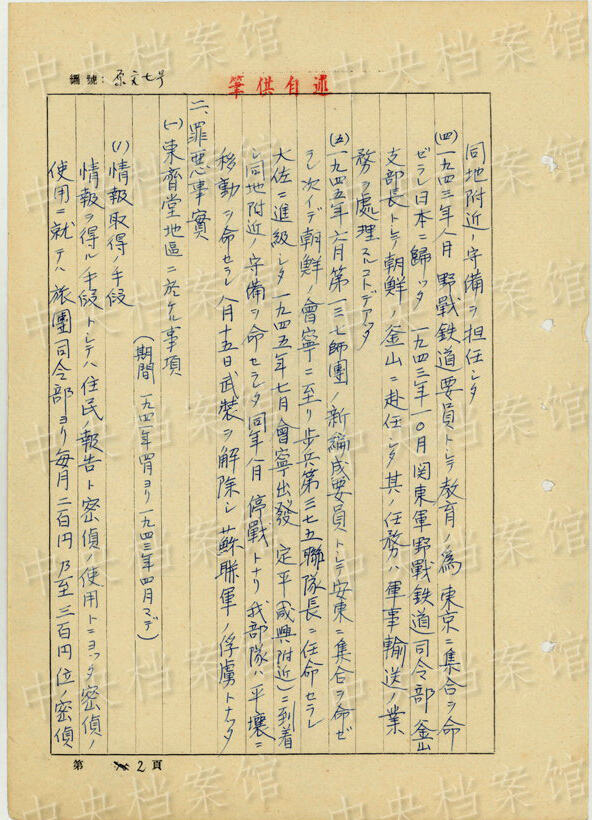 中央档案馆
編號：原文七号
筆供自述
同地附近ノ守備ヲ担任シタ
(四)一九四三年八月 野戰鉄道要員トシテ教育ノ為 東京ニ集合ヲ命
ゼラレ日本ニ歸ッタ 一九四三年一〇月関東軍野戰鉄道司令部釜山
支部長トシテ朝鮮ノ釜山ニ赴任シタ其ノ任務ハ軍事輸送ノ業
務ヲ処理スルコトデアッタ
(五)一九四五年六月第一三七師團ノ新編成要員トシテ安東ニ集合ヲ命ゼ
ラレ次イデ朝鮮ノ會寧ニ至リ歩兵第三七五聯隊長ニ任命セラレ
大佐ニ進級シタ一九四五年七月會寧出發 定平(咸興附近)ニ到着
シ同地附近ノ守備ヲ命セラレタ同年八月 停戰トナリ我部隊ハ平壤ニ
移動ヲ命セラレ八月十五日武装ヲ解除シ蘇聯軍ノ俘虜トナッタ
二、罪惡事實
(一)東齊堂地區ニ於ケル事項
(期間 一九四一年四月ヨリ一九四三年四月マデ)
(1)情報取得ノ手段
情報ヲ得ル手段トシテハ住民ノ報告ト密偵ノ使用トニヨッタ密偵ノ
使用ニ就テハ旅團司令部ヨリ毎月二百円乃至三百円位ノ密偵
第 2 頁